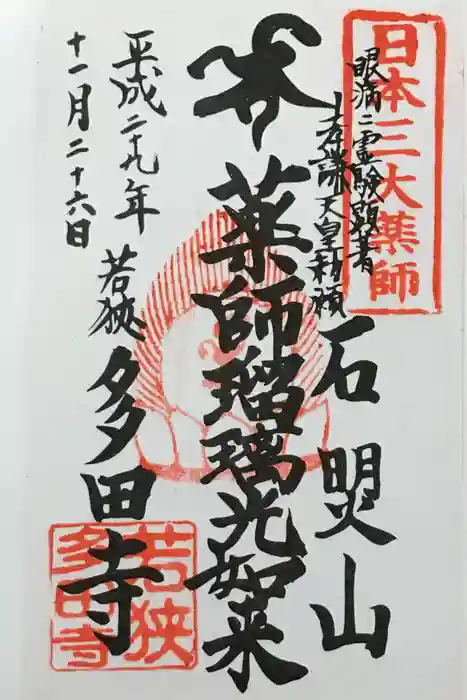 日本三大薬師
眼病ニ霊験顕著
孝謙天皇勅願
石照山
薬師瑠璃光如来
若狭 多田寺
平成二十九年
十一月二十六日
若狭
多田寺